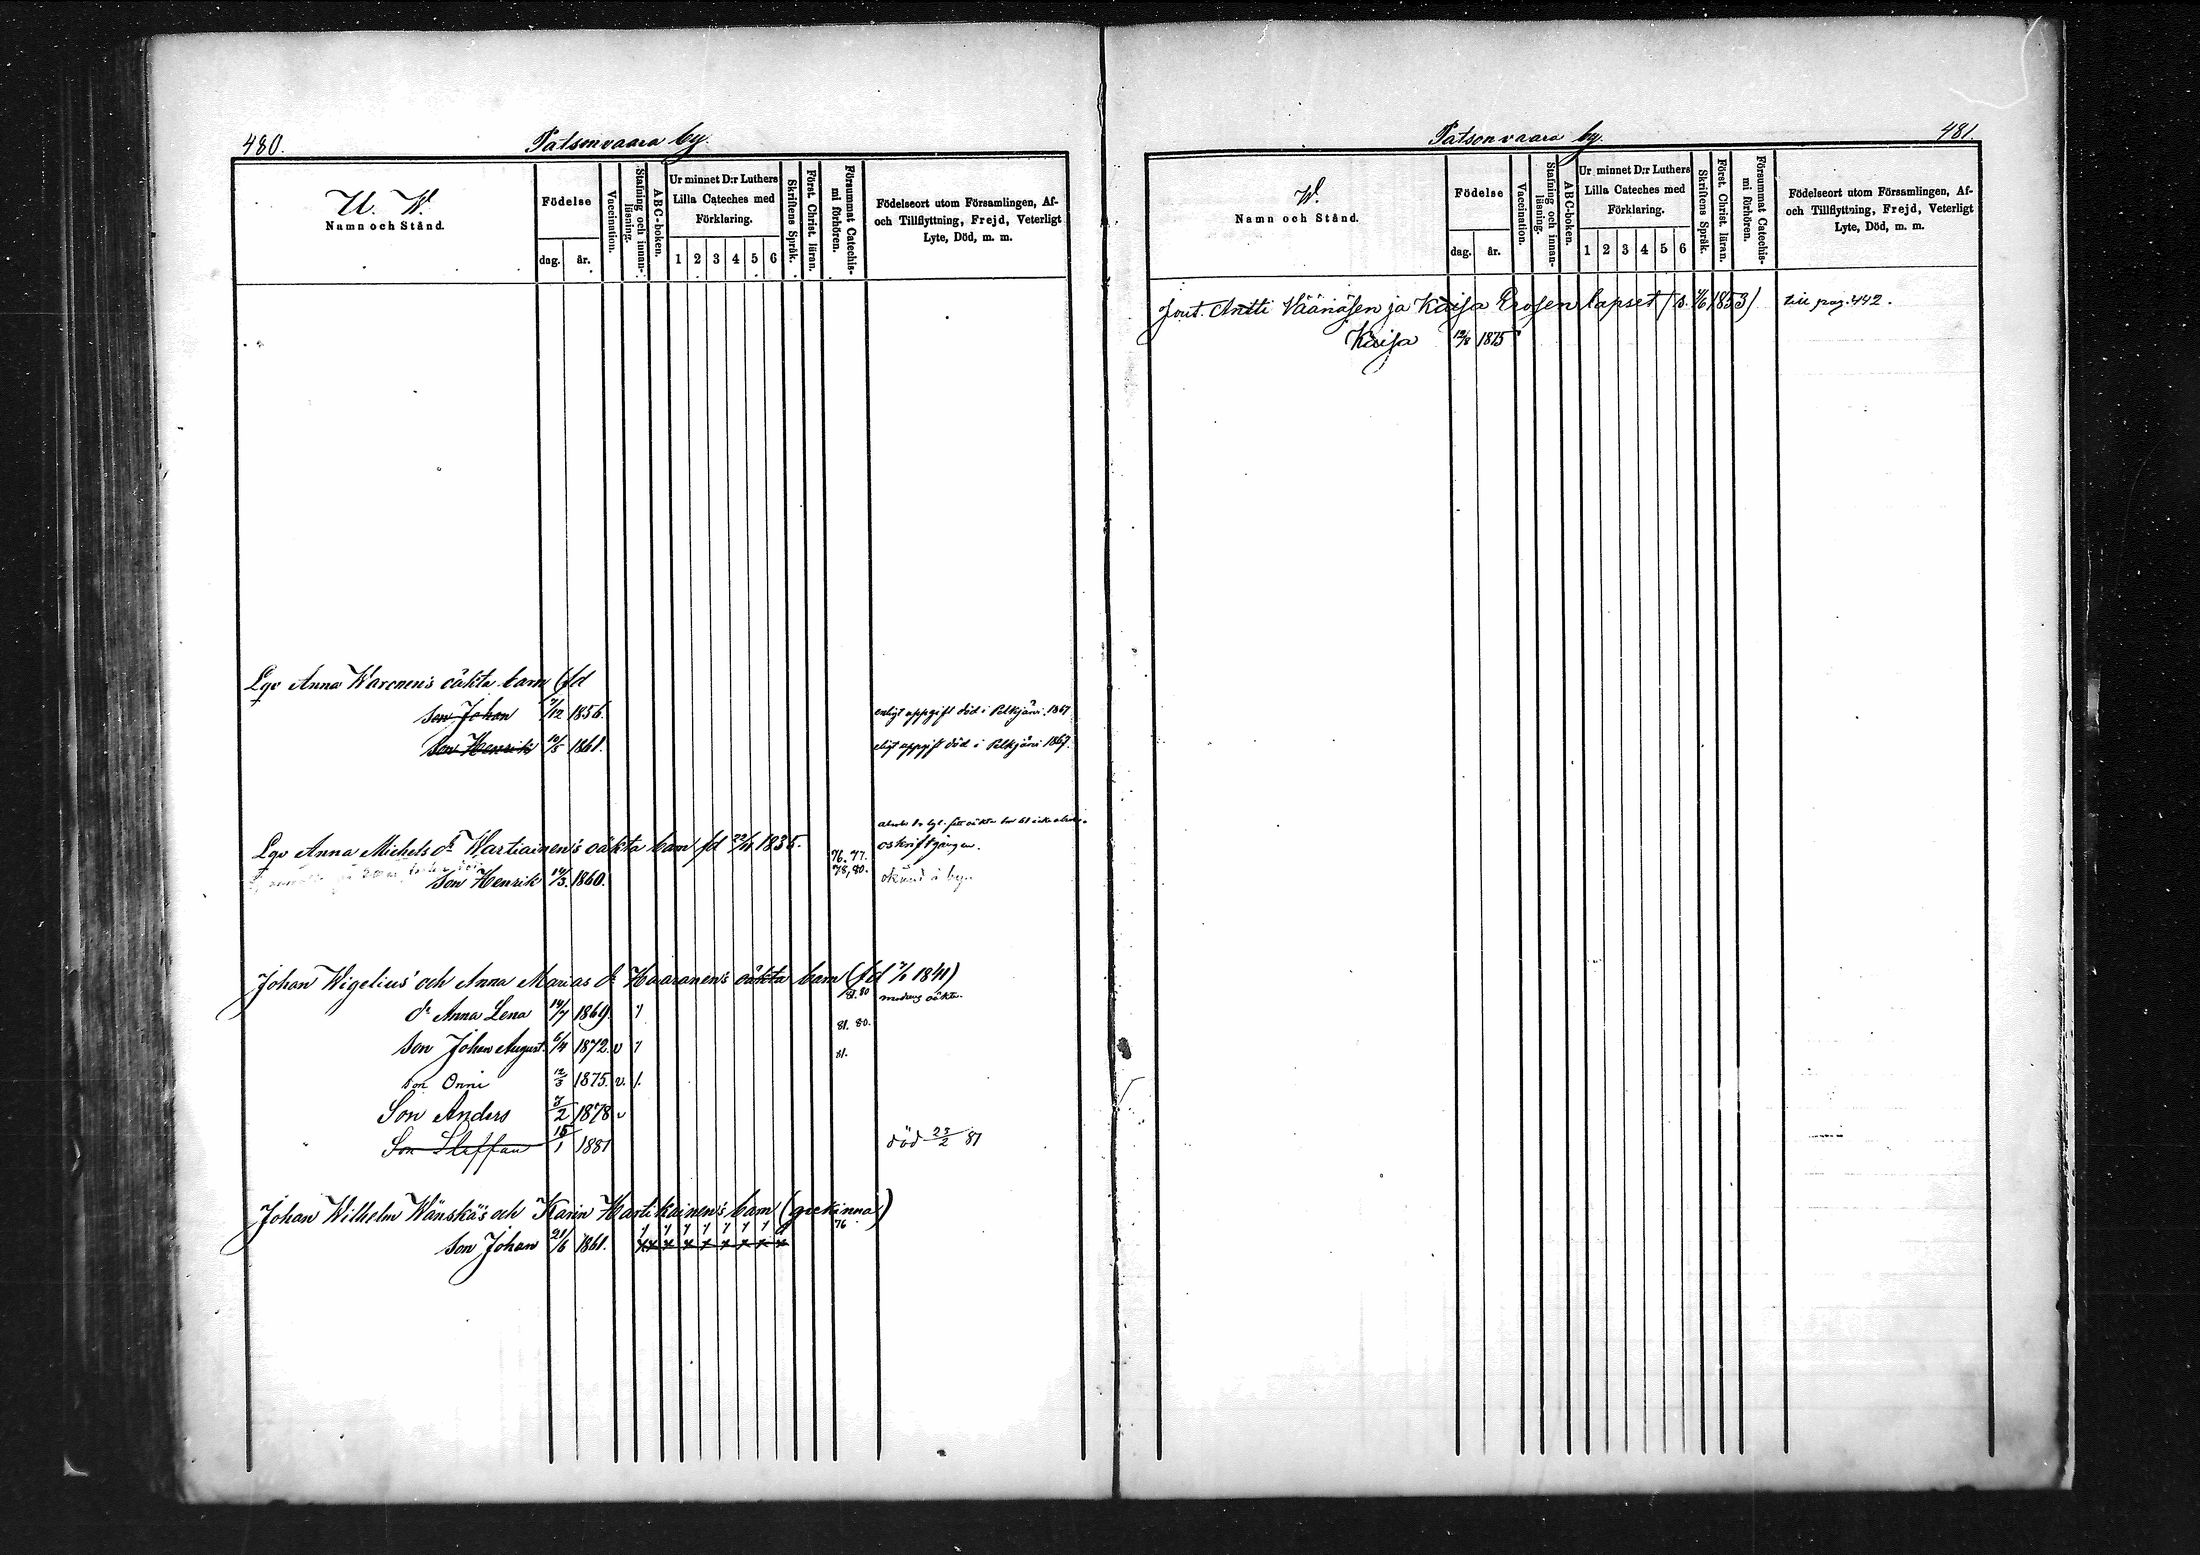 480. Patsonvaara by.
U. W.
Namn och Stånd.
Födelse
dag. år.
Vaccination.
Stafning och innan-
läsning.
ABC-boken.
Ur minnet D:r Luthers
Lilla Cateches med
Förklaring.
1 2 3 4 5 6
Skriftens Språk.
Först. Christ. läran.
Försummat Catechis-
mi förhören.
Födelseort utom Församlingen, Af-
och Tillflyttning, Frejd, Veterligt
Lyte, Död, m. m.
Lqv Anna Waronen's oäkta barn (fd
son Johan 7/12 1856. enligt uppgift död i Pelkjärvi. 1867
son Henrik 10/5 1861. eligt uppgift död i Pelkjärvi 1867.
Lqv Anna Michels dr Wartiainen's oäkta barn fd 22/11 1835. oskriftgången.
76. 77.
son Henrik 14/3. 1860. 78, 80. okänd i by.
Johan Wigelius' och Anna Marias dr Haaranen's oäkta barn (fd 7/1 1841)
81. 80 oäkta.
dr Anna Lena 14/7 1869. 1 81. 80.
son Johan August. 6/4 1872. v 1 81.
son Onni 12/3 1875. v. 1.
Son Anders 7/2 1878 v
Son Steffan 15/1 1881 död 23/2 81
Johan Wilhelm Wänskä's och Karin Hartikainen's barn (grekinna)
76
son Johan 21/6 1861. x x x x x x x x x
Patsonvaara by. 481.
W.
Namn och Stånd.
Födelse
dag. år.
Vaccination.
Stafning och innan-
läsning.
ABC-boken.
Ur minnet D:r Luthers
Lilla Cateches med
Förklaring.
1 2 3 4 5 6
Skriftens Språk.
Först. Christ. läran.
Försummat Catechis-
mi förhören.
Födelseort utom Församlingen, Af-
och Tillflyttning, Frejd, Veterligt
Lyte, Död, m. m.
Antti Väänäsen ja Kaisa Erosen lapset (s. 1853) till pag. 442.
Kaisa 12/8 1875